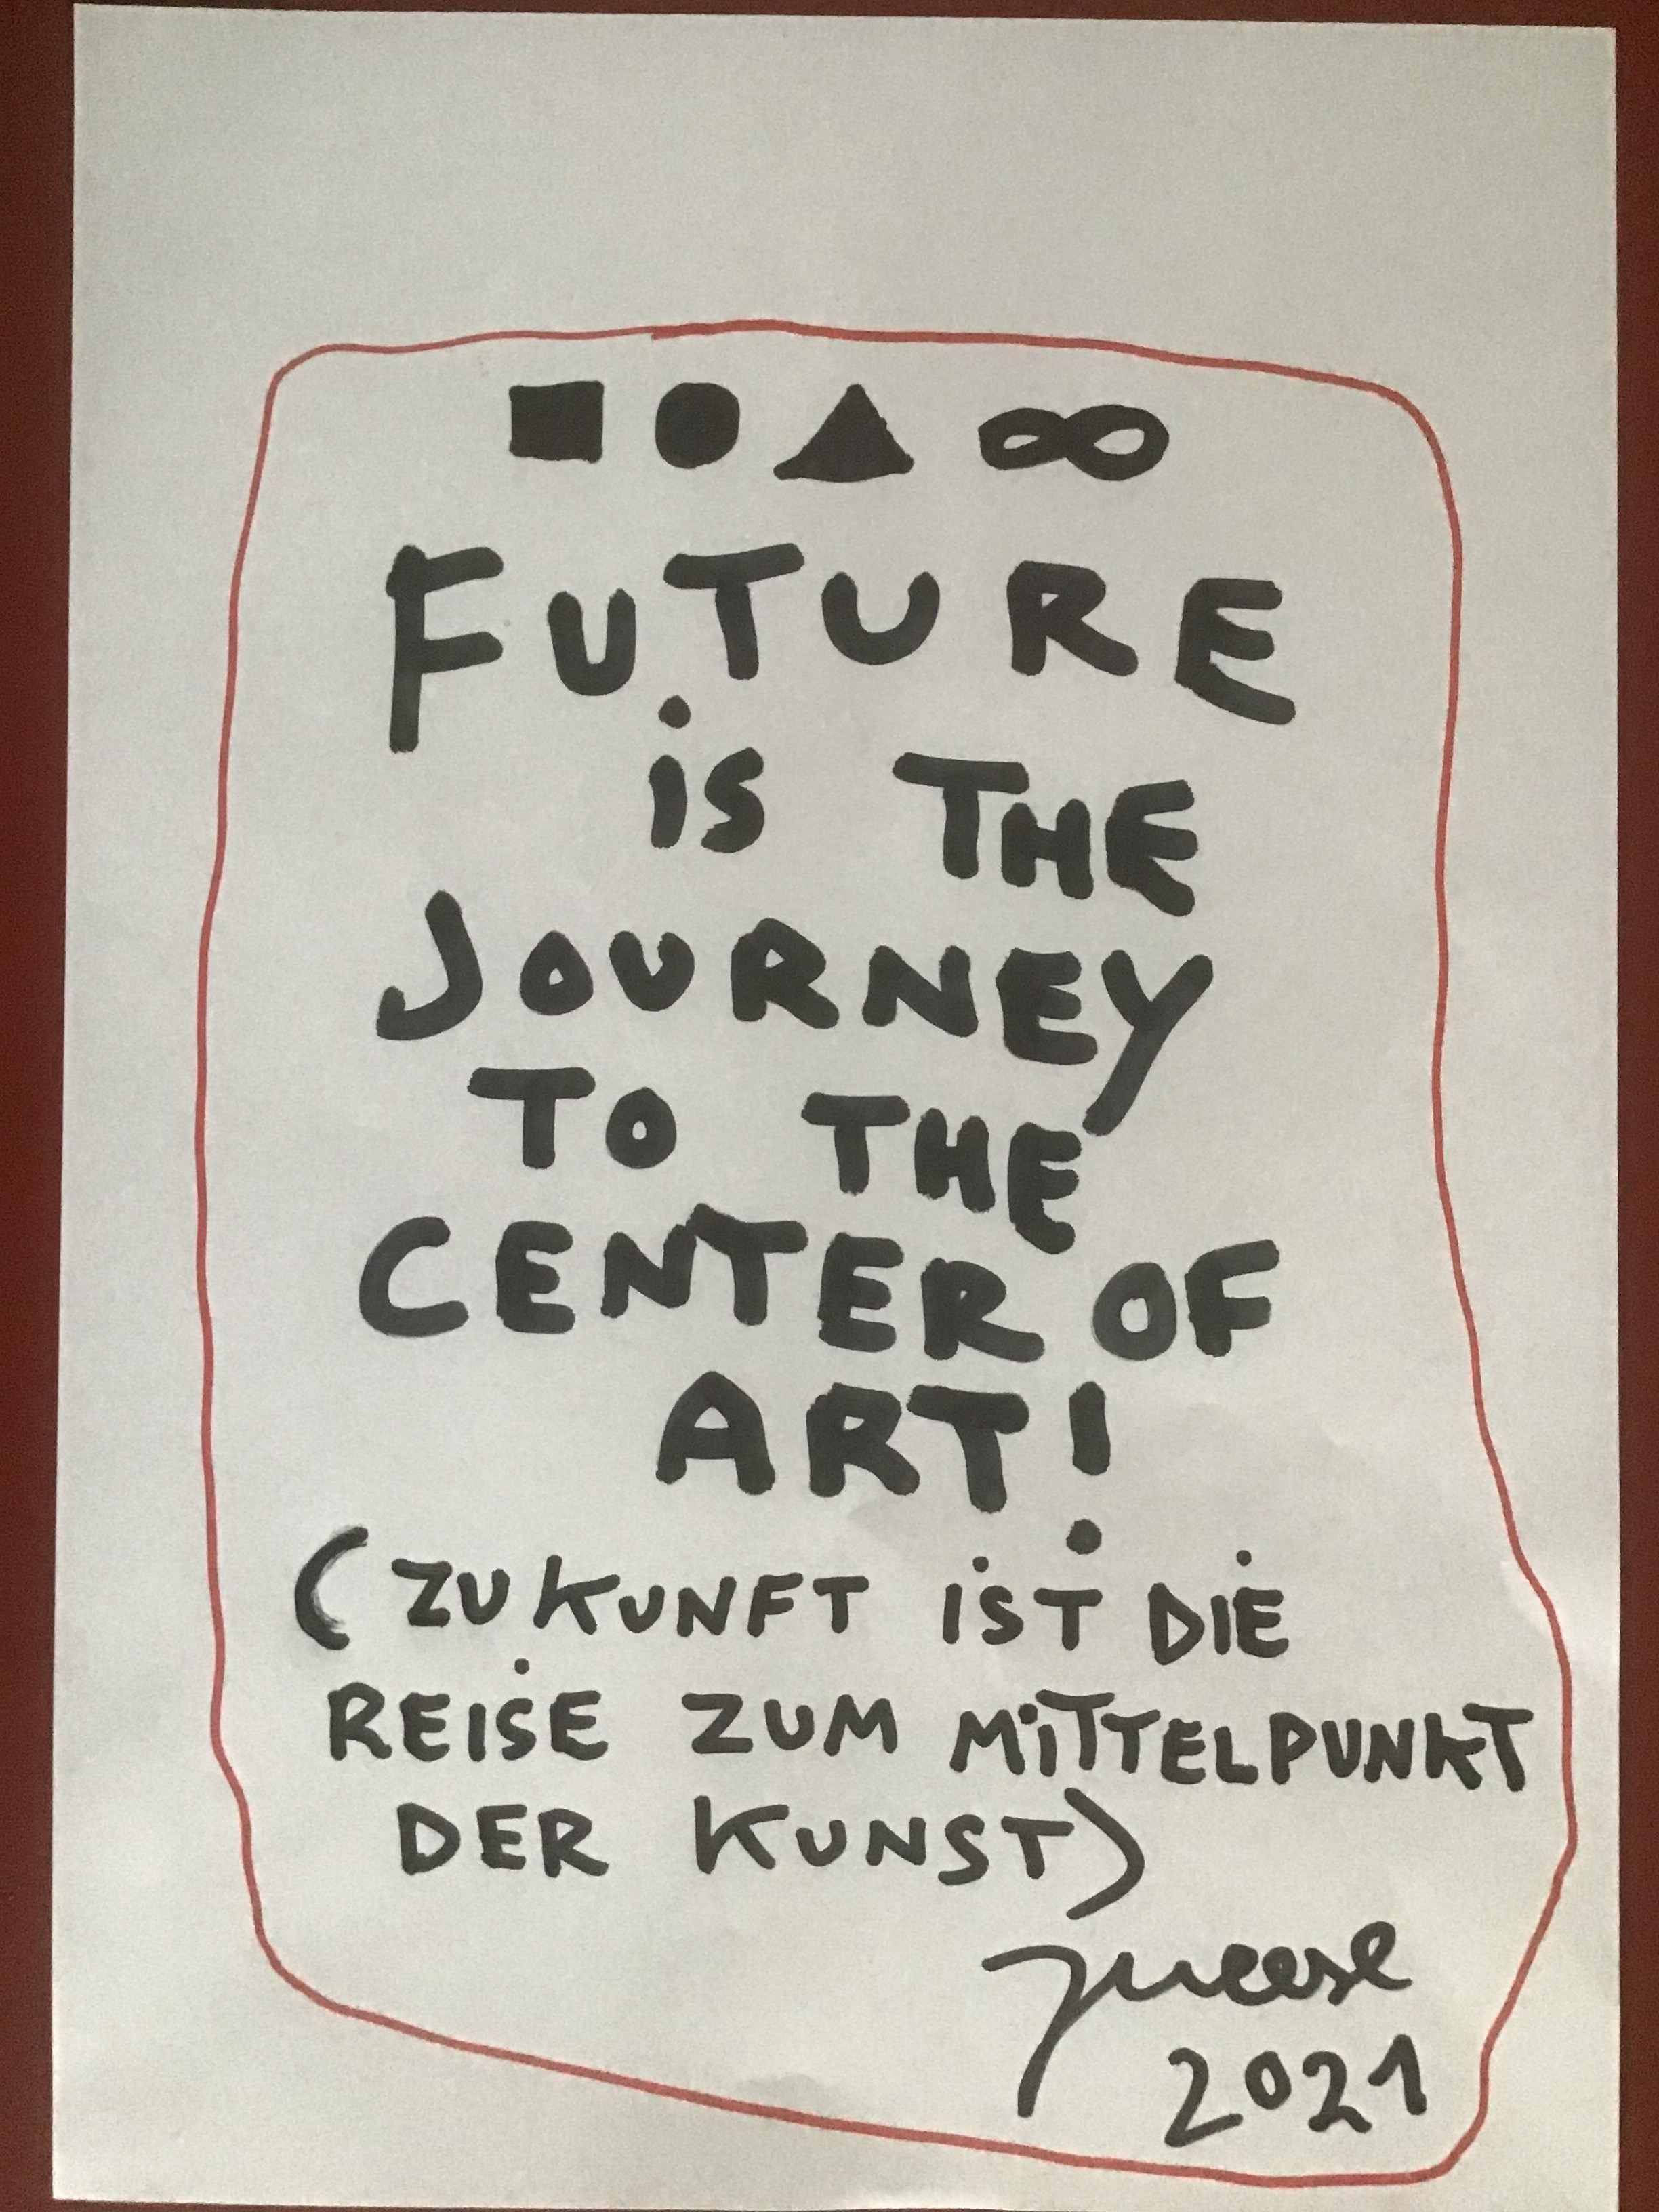 ■ ● ▲ ∞
FUTURE
is THE
JOURNEY
TO THE
CENTER OF
ART!
(ZUKUNFT iST DIE
REISE ZUM MiTTELPUNKT
DER KUNST)
Jmeese
2021